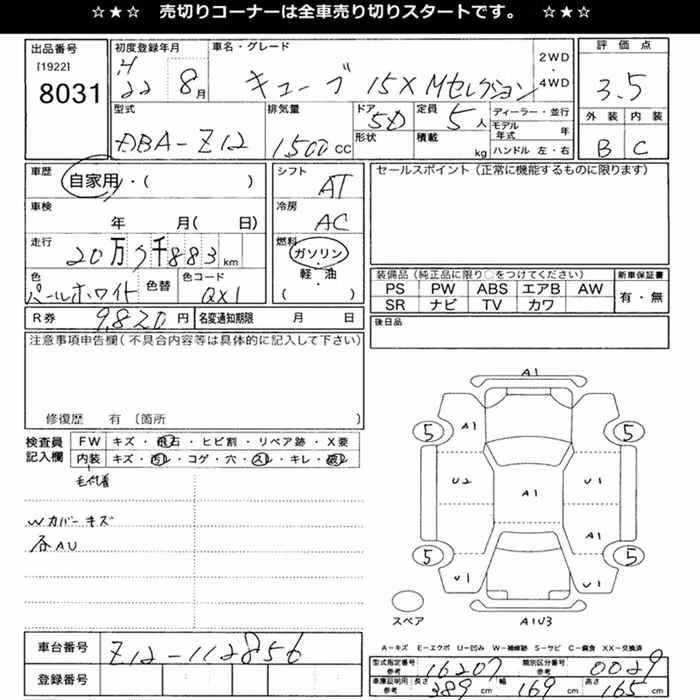 ☆★☆ 売切りコーナーは全車売り切りスタートです。 ☆★☆
出品番号 初度登録年月 車名・グレード 2WD・4WD 評価点
[1922] 8031 H22 8月 キューブ 15X Mセレクション 3.5
型式 排気量 ドア形状 定員 積載 ディーラー・並行 外装 内装
DBA-Z12 1500cc 5D 5人 kg モデル年式 年 B C
ハンドル 左・右
車歴 自家用・( ) シフト AT セールスポイント(正常に機能するものに限ります)
車検 年 月( 日) 冷房 AC
走行 20万 千883km 燃料 ガソリン・軽油 ( )
色 パールホワイト 色替 色コード QX1
装備品(純正品に限り○をつけてください) 新車保証書
PS PW ABS エアB AW 有・無
SR ナビ TV カワ
R券 9820円 名変通知期限 月 日 後日品
注意事項申告欄(不具合内容等は具体的に記入して下さい)
修復歴 有 (箇所 )
検査員記入欄 FW キズ・飛石・ヒビ割・リペア跡・X要
内装 キズ・汚レ・コゲ・穴・スレ・キレ・破レ
毛付着
Wカバーキズ
各AU
A1
5 A1 5
U2 A1 U1
A1
5 5
U1 U1
スペア A1U3
A-キズ E-エクボ U-凹み W-補修跡 S-サビ C-腐食 XX-交換済
車台番号 Z12-112856
登録番号
型式指定番号 参考 16207 類別区分番号 参考 0029
車庫証明用 参考 長さ 389cm 幅 169cm 高さ 165cm